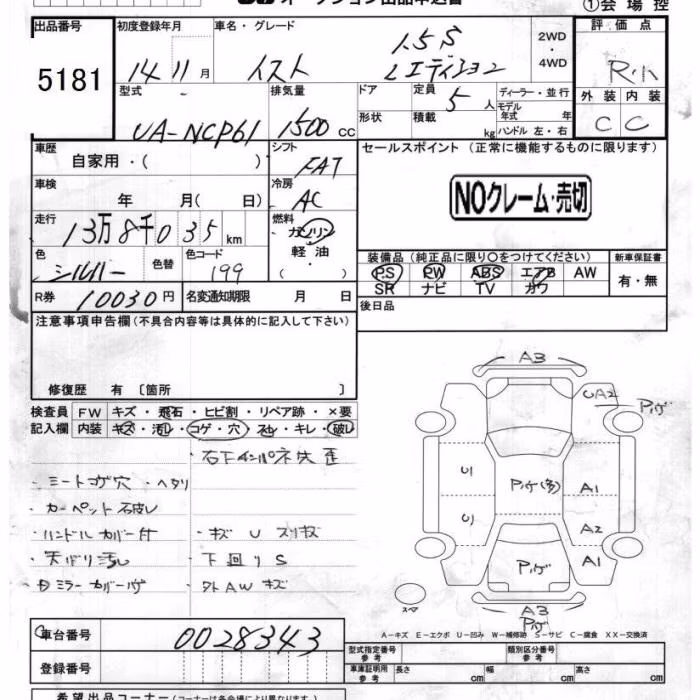 オークション出品申込書
①会場控
出品番号 5181
初度登録年月 14 11 月
車名・グレード イスト 1.5S Lエディション
2WD・4WD
評価点 R
外装 C 内装 C
型式 UA-NCP61
排気量 1500 CC
ドア 形状
定員 5 人
積載 kg
ディーラー・並行
モデル年式 年
ハンドル 左・右
車歴 自家用・( )
シフト FAT
セールスポイント (正常に機能するものに限ります)
NOクレーム・売切
車検 年 月( 日)
冷房 AC
走行 13万8千035 km
燃料 ガソリン 軽油
色 シルバー 色替 色コード 199
装備品 (純正品に限り○をつけてください)
新車保証書 有・無
PS PW ABS エアB AW
SR ナビ TV カワ
R券 10030円
名変通知期限 月 日
後日品
注意事項申告欄 (不具合内容等は具体的に記入して下さい)
修復歴 有 〔箇所 〕
検査員記入欄
FW キズ・飛石・ヒビ割・リペア跡・×要
内装 キズ・汚れ・コゲ・穴・スレ・キレ・破レ
・シートコゲ穴 ・ヘタリ
・カーペット
・ハンドルカバー付
・キズ U スリキズ
・天バリ汚レ
・下回りS
・ミラーカバー
・外AWキズ
A3
UA2
U1
A1
U
A2
A1
A3
スペア
A-キズ E-エクボ U-凹み W-補修跡 S-サビ C-腐食 XX-交換済
車台番号 0028343
型式指定番号 参考
類別区分番号 参考
登録番号
車庫証明用 参考 長さ cm 幅 cm 高さ cm
希望出品コーナー